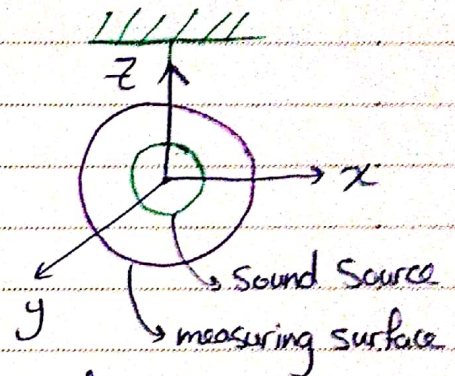 Z
x
y
Sound Source
measuring surface